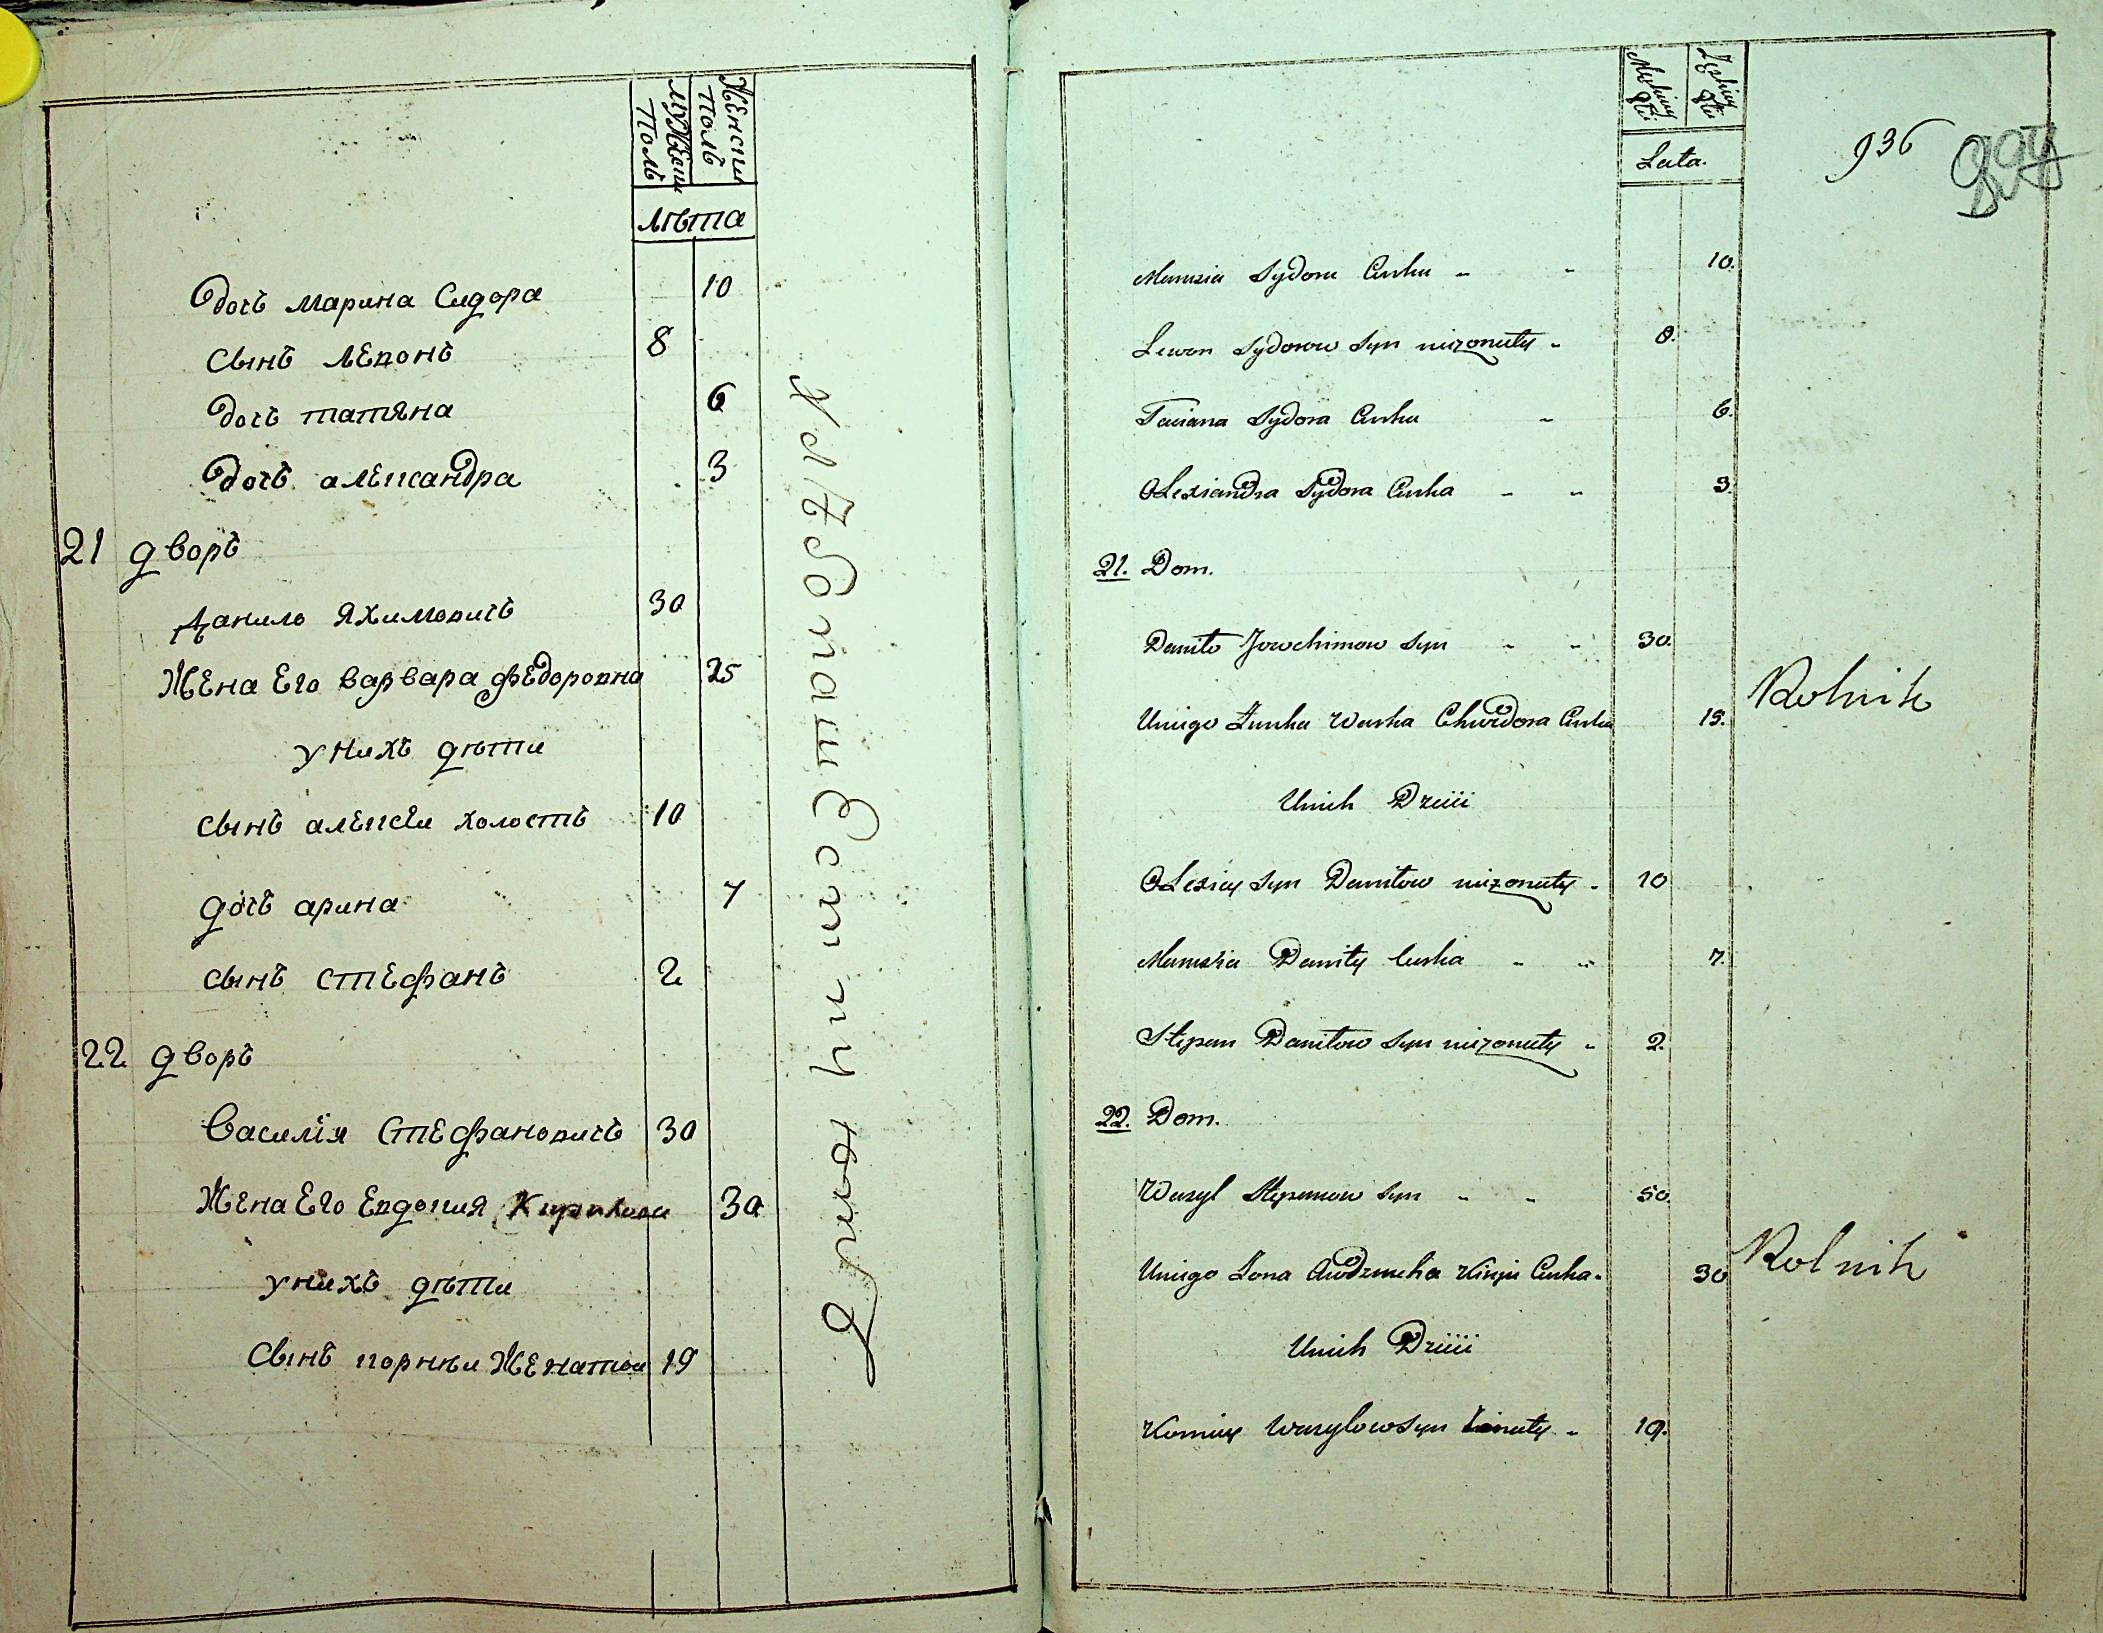 Женски Полъ
Мужески Полъ
Лѣта
Дочь Марина Сидора 10
Сынъ Левонъ 8
Дочь Татяна 6
Дочь Александра 3
21 Дворъ
Данило Яхимовичъ 30
Жена Его Варвара Федоровна 25
у нихъ дѣти
Сынъ Алексѣи холостъ 10
Дочь Арина 7
Сынъ Стефанъ 2
22 Дворъ
Василія Стефановичъ 30
Жена Его Евдокия 30
у нихъ дѣти
Сынъ Корнѣи Женатои 19
936
Lata.
Sydora Curka " " 10.
Lewon Sydorow Syn nieżonaty " 8.
Taciana Sydora Curka " 6.
Olexiandra Sydora Curka " " 3.
21. Dom.
Daniło Jowchimow Syn " " 30.
Uniego Żunka Warka Chwidora Curka 15.
Rolnik
Unich Dzieii
Olexiey Syn Daniłow nieżonaty " 10
Daniły Curka " " 7.
Stepan Daniłow Syn nieżonaty " 2.
22. Dom.
Wasyl Stepanow Syn " " 50.
Uniego Żona Curka " 30
Rolnik
Unich Dzieii
Korniey Wasylow Syn żonaty " 19.